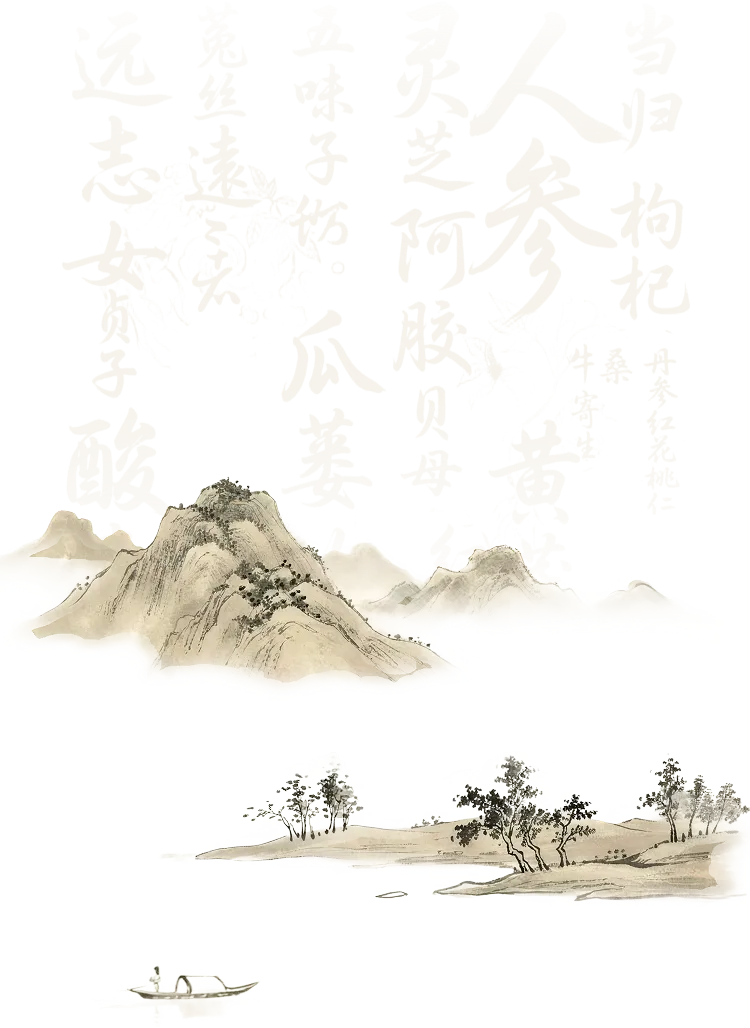 当归
枸杞
丹参红花桃仁
桑
寄生
牛
人参
黄
灵芝阿胶贝母
五味子
瓜蒌
菟丝
遠
远志女贞子酸